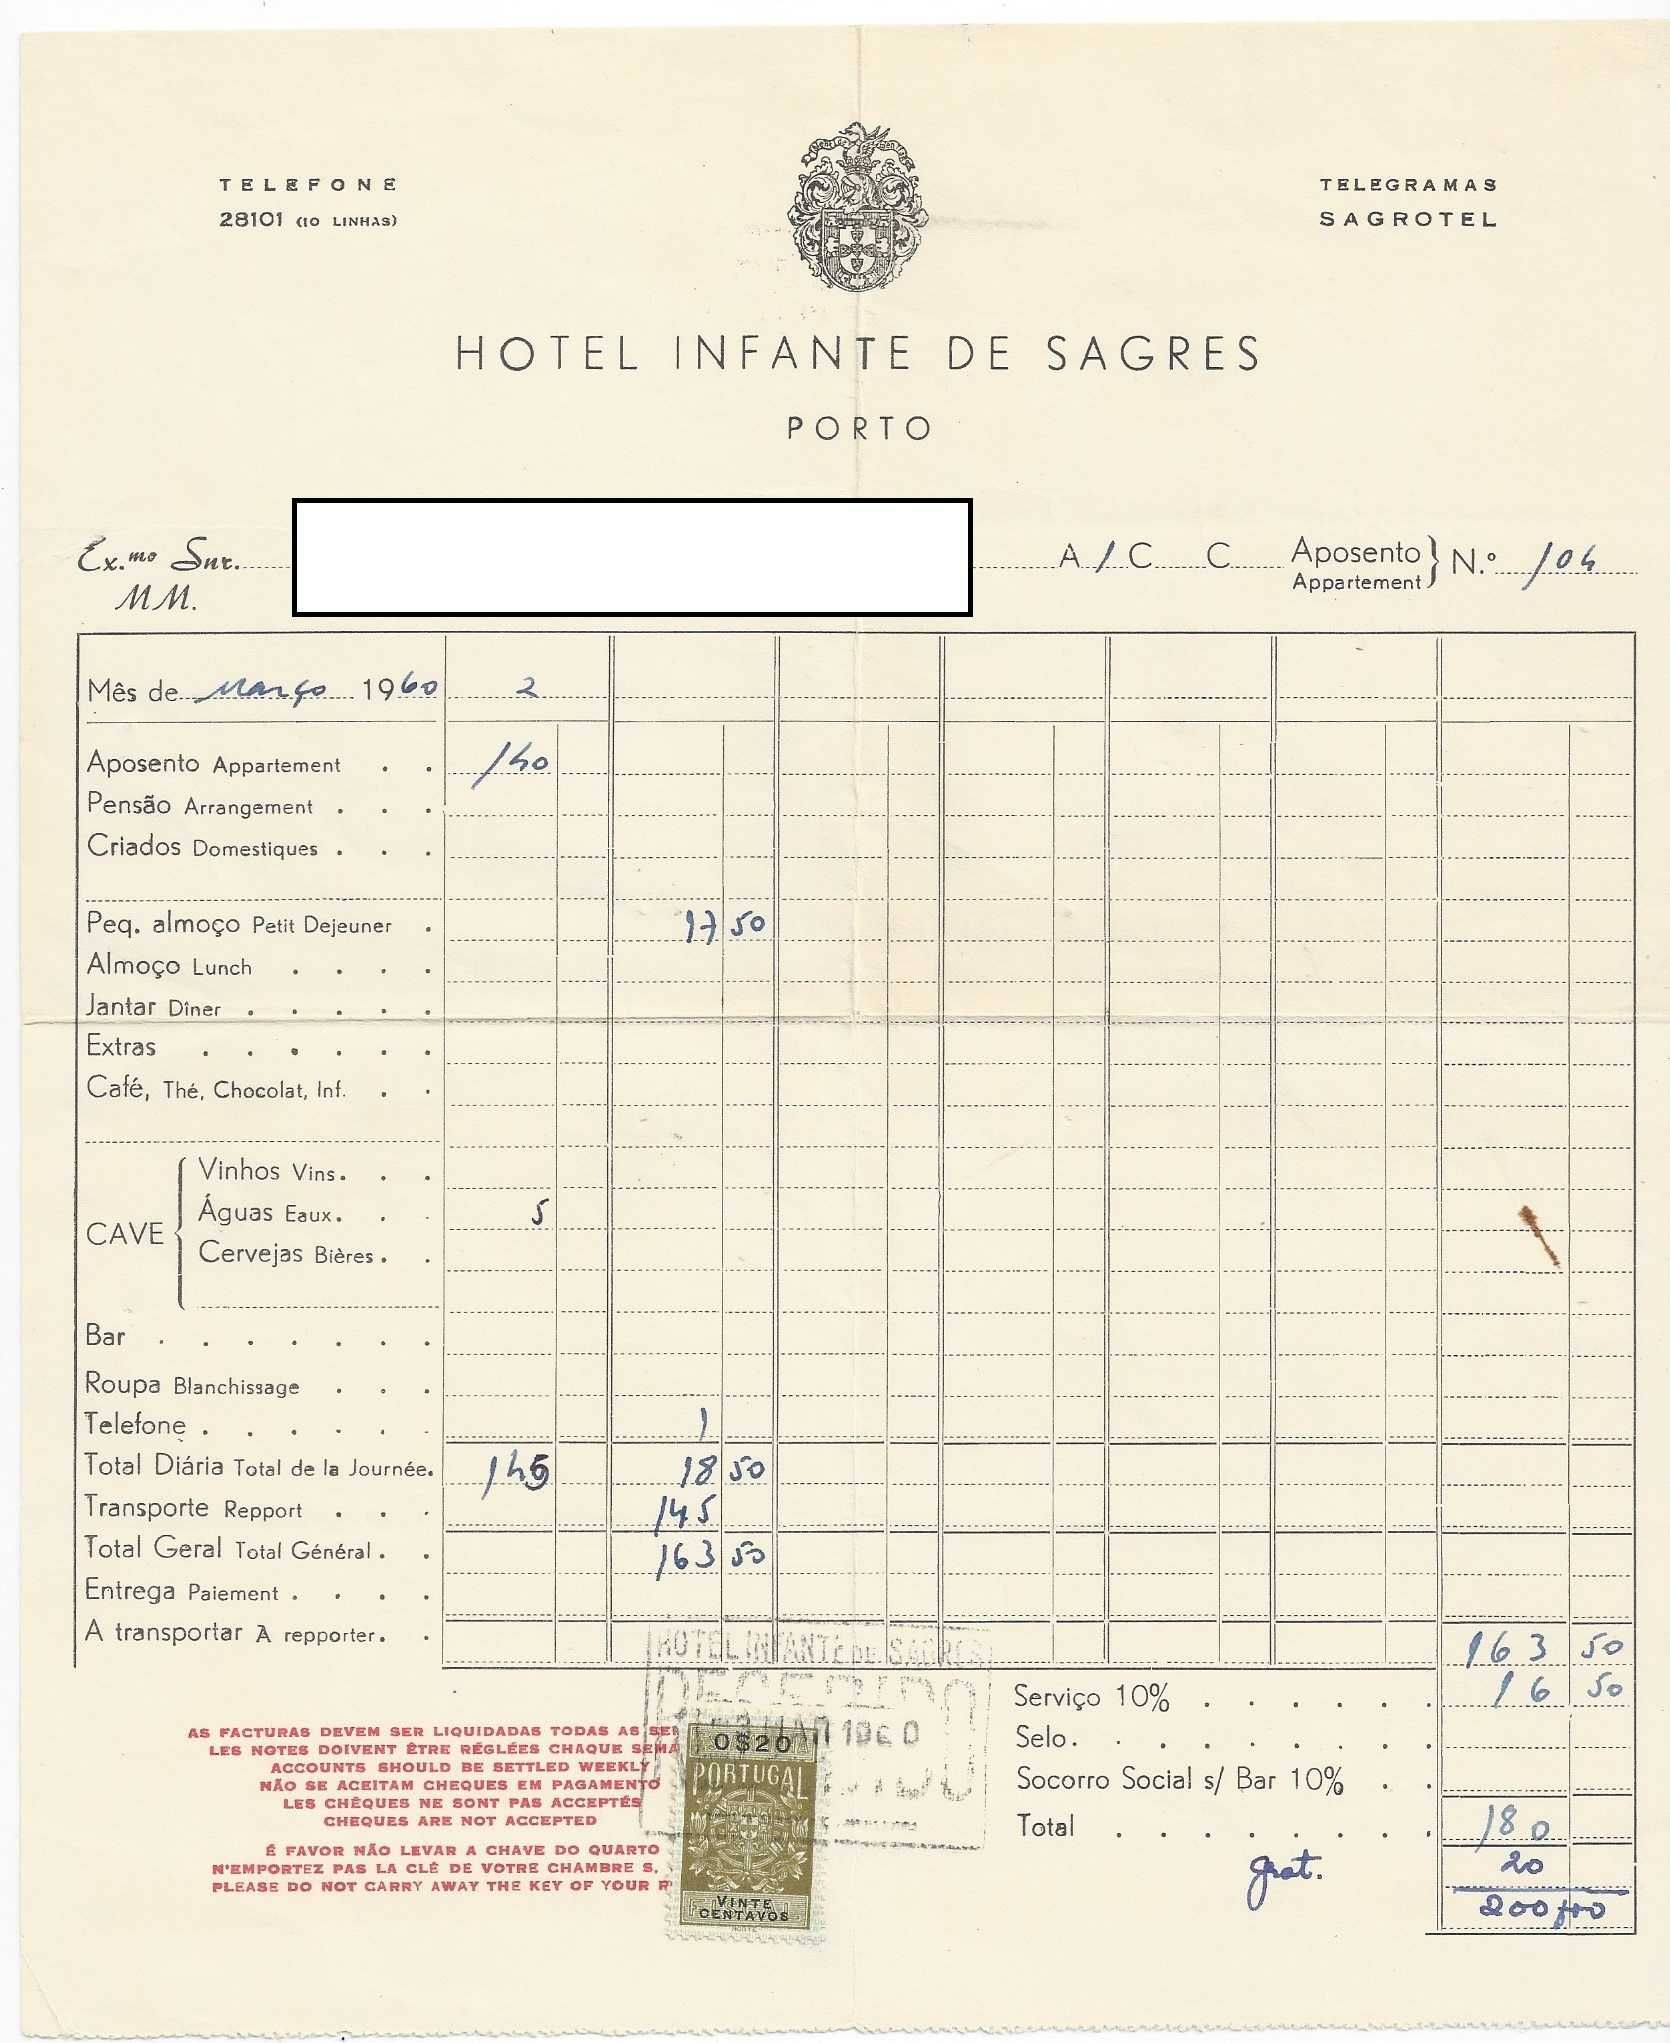 TELEFONE
28101 (10 LINHAS)
TELEGRAMAS
SAGROTEL
HOTEL INFANTE DE SAGRES
PORTO
Ex.mo Snr.
MM.
A / C C Aposento Appartement } N.º 104
Mês de Março 1960 2
Aposento Appartement . . 140
Pensão Arrangement . . .
Criados Domestiques . . .
Peq. almoço Petit Dejeuner . 17 50
Almoço Lunch . . . .
Jantar Dîner . . . . .
Extras . . . . . .
Café, Thé, Chocolat, Inf. . .
CAVE
Vinhos Vins. . .
Águas Eaux. . . 5
Cervejas Bières . .
Bar . . . . . . .
Roupa Blanchissage . . .
Telefone . . . . . . 1
Total Diária Total de la Journée. 145 18 50
Transporte Repport . . . 145
Total Geral Total Général . . 163 50
Entrega Paiement . . . .
A transportar A repporter. . 163 50
HOTEL INFANTE DE SAGRES
MAR 1960
Serviço 10% . . . . . . 16 50
Selo. . . . . . . . .
Socorro Social s/ Bar 10% . .
Total . . . . . . . . 180
grat. 20
200
AS FACTURAS DEVEM SER LIQUIDADAS TODAS AS SE
LES NOTES DOIVENT ÊTRE RÉGLÉES CHAQUE SEMA
ACCOUNTS SHOULD BE SETTLED WEEKLY
NÃO SE ACEITAM CHEQUES EM PAGAMENTO
LES CHÈQUES NE SONT PAS ACCEPTÉS
CHEQUES ARE NOT ACCEPTED
É FAVOR NÃO LEVAR A CHAVE DO QUARTO
N'EMPORTEZ PAS LA CLÉ DE VOTRE CHAMBRE S.
PLEASE DO NOT CARRY AWAY THE KEY OF YOUR R
0$20
PORTUGAL
VINTE
CENTAVOS